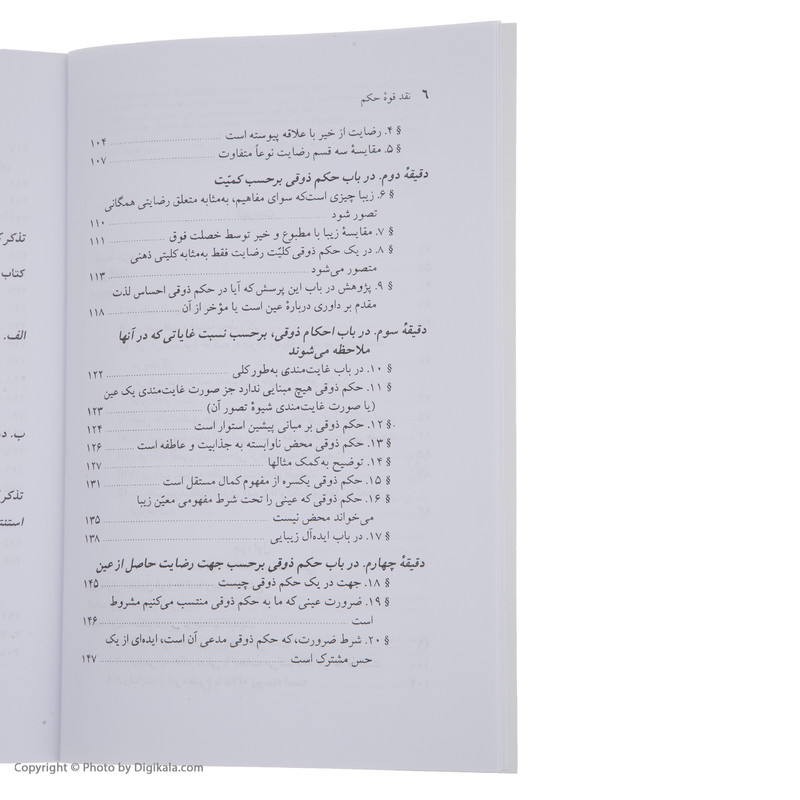 ۶ نقد قوهٔ حکم
§ ۴. رضایت از خیر با علاقه پیوسته است ۱۰۴
§ ۵. مقایسهٔ سه قسم رضایت نوعاً متفاوت ۱۰۷
دقیقهٔ دوم. در باب حکم ذوقی برحسب کمیّت
§ ۶. زیبا چیزی است‌که سوای مفاهیم، به‌مثابه متعلق رضایتی همگانی
تصور شود ۱۱۰
§ ۷. مقایسهٔ زیبا با مطبوع و خیر توسط خصلت فوق ۱۱۱
§ ۸. در یک حکم ذوقی کلیّت رضایت فقط به‌مثابه کلیتی ذهنی
متصور می‌شود ۱۱۳
§ ۹. پژوهش در باب این پرسش‌که آیا در حکم ذوقی احساس لذت
مقدم بر داوری دربارهٔ عین است یا مؤخر از آن ۱۱۸
دقیقهٔ سوم. در باب احکام ذوقی، برحسب نسبت غایاتی که در آنها
ملاحظه می‌شوند
§ ۱۰. در باب غایت‌مندی به‌طور کلی ۱۲۲
§ ۱۱. حکم ذوقی هیچ مبنایی ندارد جز صورت غایت‌مندی یک عین
(یا صورت غایت‌مندی شیوهٔ تصور آن) ۱۲۳
§ ۱۲. حکم ذوقی بر مبانی پیشین استوار است ۱۲۴
§ ۱۳. حکم ذوقی محض ناوابسته به جذابیت و عاطفه است ۱۲۶
§ ۱۴. توضیح به‌کمک مثالها ۱۲۷
§ ۱۵. حکم ذوقی یکسره از مفهوم کمال مستقل است ۱۳۱
§ ۱۶. حکم ذوقی که عینی را تحت شرط مفهومی معیّن زیبا
می‌خواند محض نیست ۱۳۵
§ ۱۷. در باب ایده‌آل زیبایی ۱۳۸
دقیقهٔ چهارم. در باب حکم ذوقی برحسب جهت رضایت حاصل از عین
§ ۱۸. جهت در یک حکم ذوقی چیست ۱۴۵
§ ۱۹. ضرورت عینی که ما به حکم ذوقی منتسب می‌کنیم مشروط
است ۱۴۶
§ ۲۰. شرط ضرورت، که حکم ذوقی مدعی آن است، ایده‌ای از یک
حس مشترک است ۱۴۷
کتاب
الف.
ب.
Copyright © Photo by Digikala.com